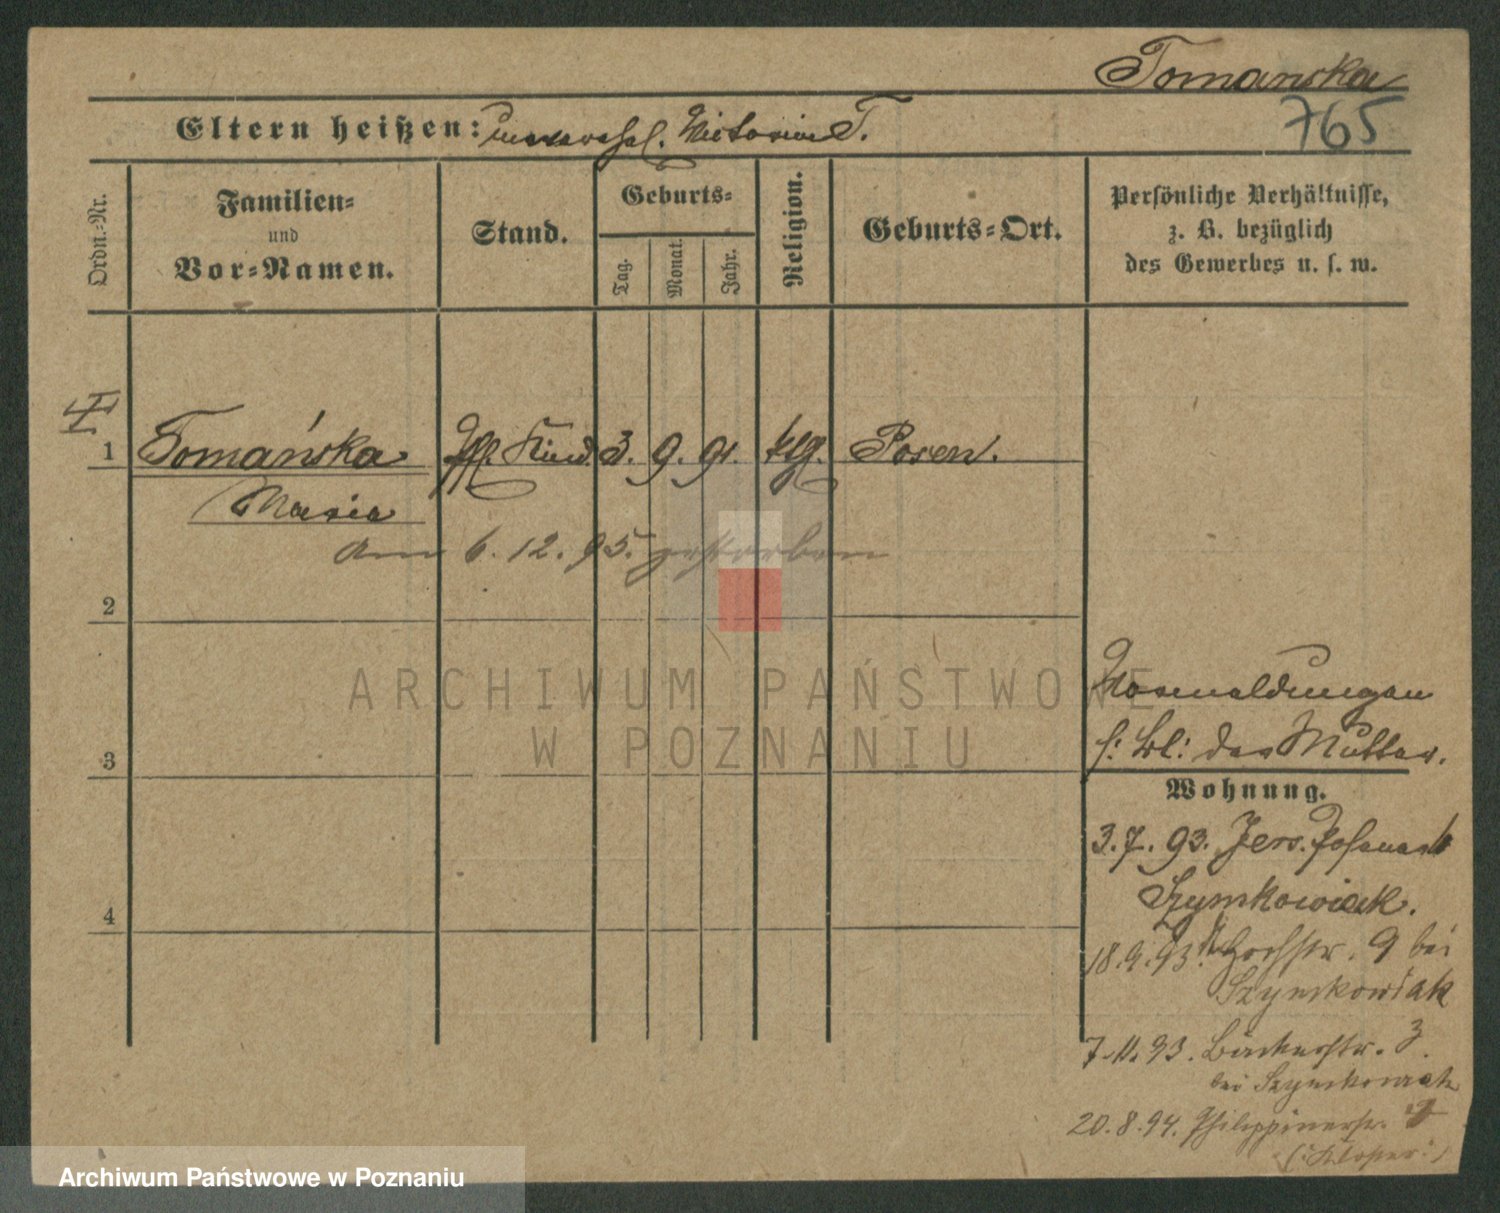 Tomanska
765
Eltern heißen: unverehel. Victoria T.
Ordn.-Nr.
Familien-
und
Vor-Namen.
Stand.
Geburts-
Tag.
Monat.
Jahr.
Religion.
Geburts-Ort.
Persönliche Verhältnisse,
z. B. bezüglich
des Gewerbes u. s. w.
1 Tomańska Kind. 3. 9. 91. ktg. Posen.
Maria
am 6. 12. 95. gestorben
2
3
4
s: Bl: der Mutter.
Wohnung.
3.7.93. Jers.
Szymkowiak.
18.9.93. 9 bei
Szymkowiak
7.11.93. Bäckerstr. 3.
bei Szymkowiak
20.8.94. Philippinerstr.
ARCHIWUM PAŃSTWOWE
W POZNANIU
Archiwum Państwowe w Poznaniu